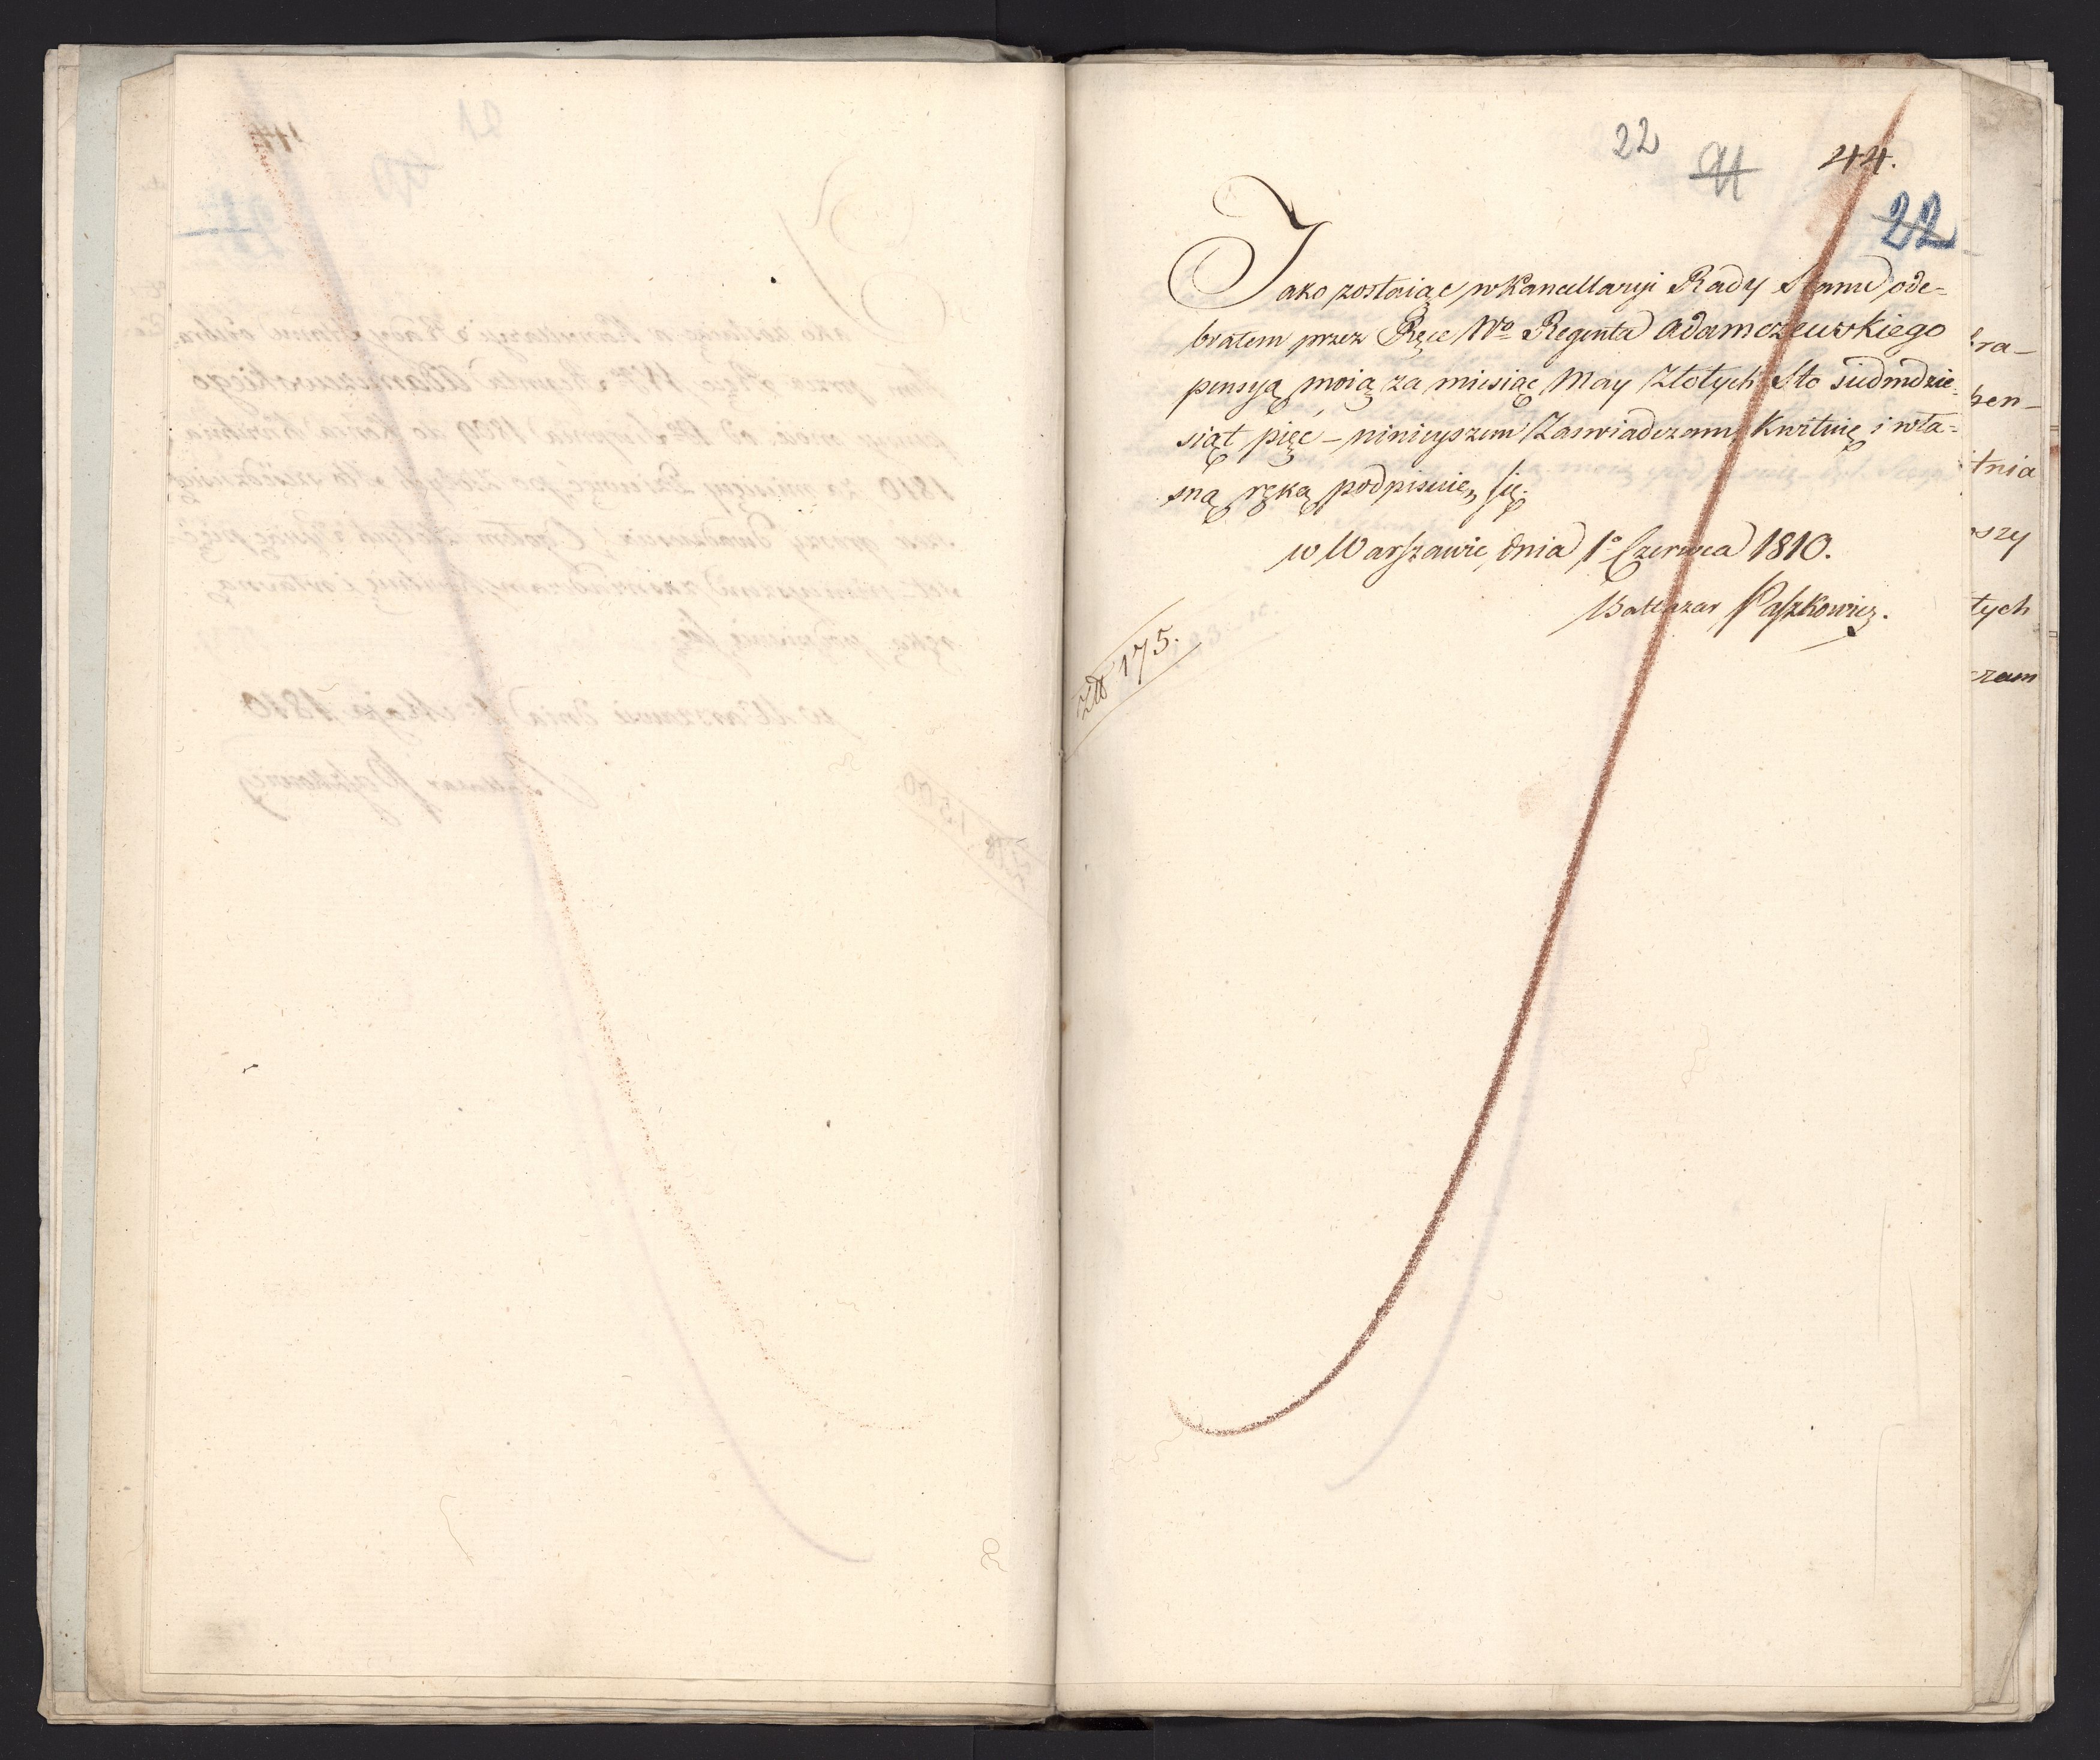 22
44.
22
Jako zostaiąc w Kancellaryi Rady Stanu ode-
brałem przez Ręce Wo Regenta Adamczewskiego
pensyą moią za miesiąc May Złotych Sto siedmdzie-
siąt pięć – ninieyszem Zaswiadczam, Kwituię i wła-
sną ręką podpisuię się.
w Warszawie, dnia 1o Czerwca 1810.
Baltazar Paszkowicz.
Złł 175.
bra-
pen-
tnia
oszy
tych
czam